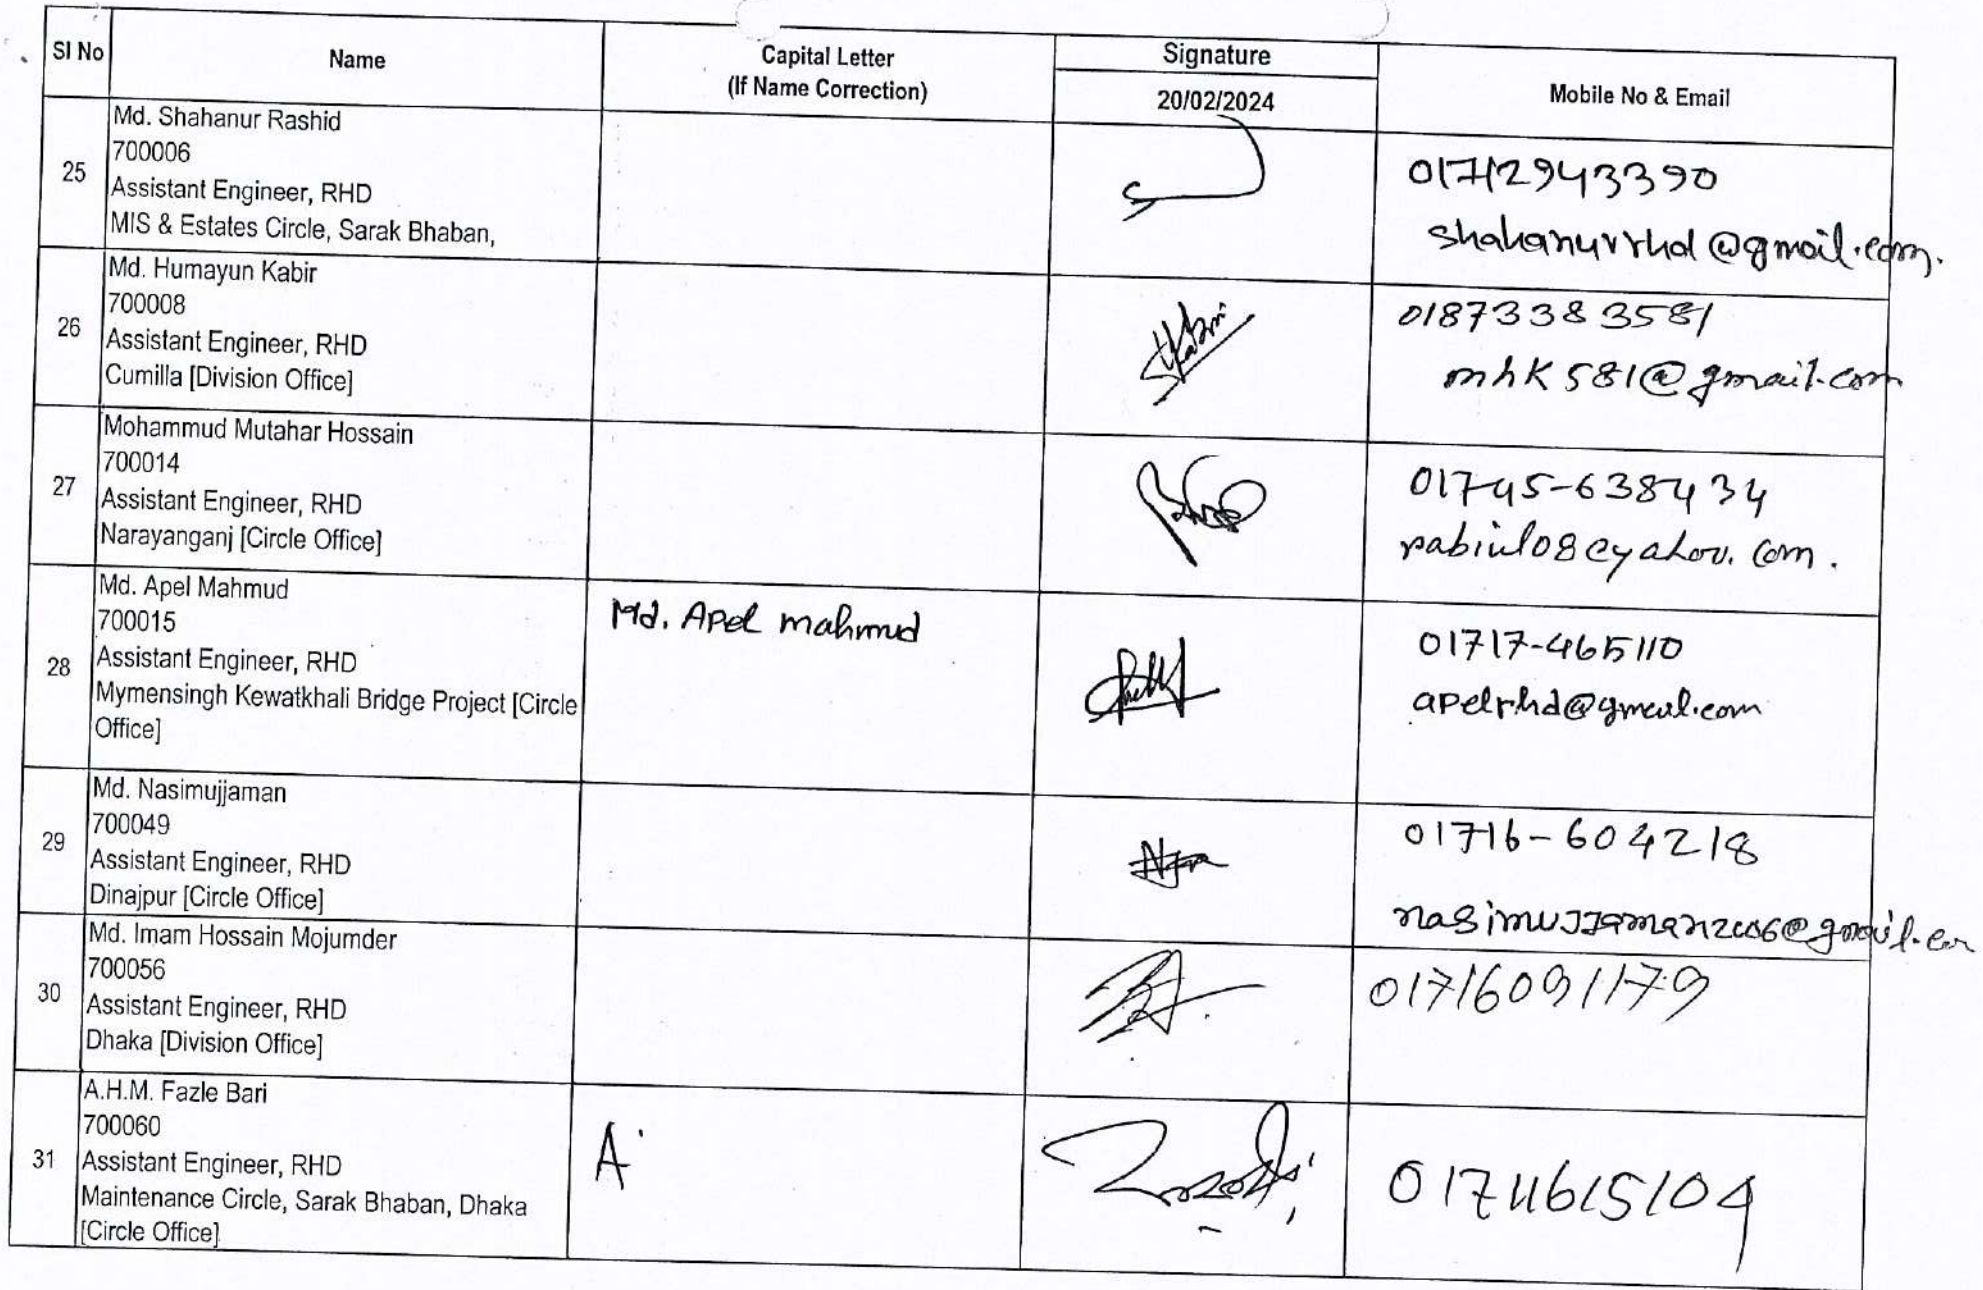 Sl No
Name
Capital Letter
(If Name Correction)
Signature
20/02/2024
Mobile No & Email
25
Md. Shahanur Rashid
700006
Assistant Engineer, RHD
MIS & Estates Circle, Sarak Bhaban,
01712943390
shahanurrhd@gmail.com.
26
Md. Humayun Kabir
700008
Assistant Engineer, RHD
Cumilla [Division Office]
01873383581
mhk581@gmail.com
27
Mohammud Mutahar Hossain
700014
Assistant Engineer, RHD
Narayanganj [Circle Office]
01745-638434
28
Md. Apel Mahmud
700015
Assistant Engineer, RHD
Mymensingh Kewatkhali Bridge Project [Circle
Office]
Md. Apel mahmud
01717-465110
apelrhd@gmail.com
29
Md. Nasimujjaman
700049
Assistant Engineer, RHD
Dinajpur [Circle Office]
01716-604218
30
Md. Imam Hossain Mojumder
700056
Assistant Engineer, RHD
Dhaka [Division Office]
01716091179
31
A.H.M. Fazle Bari
700060
Assistant Engineer, RHD
Maintenance Circle, Sarak Bhaban, Dhaka
[Circle Office]
A